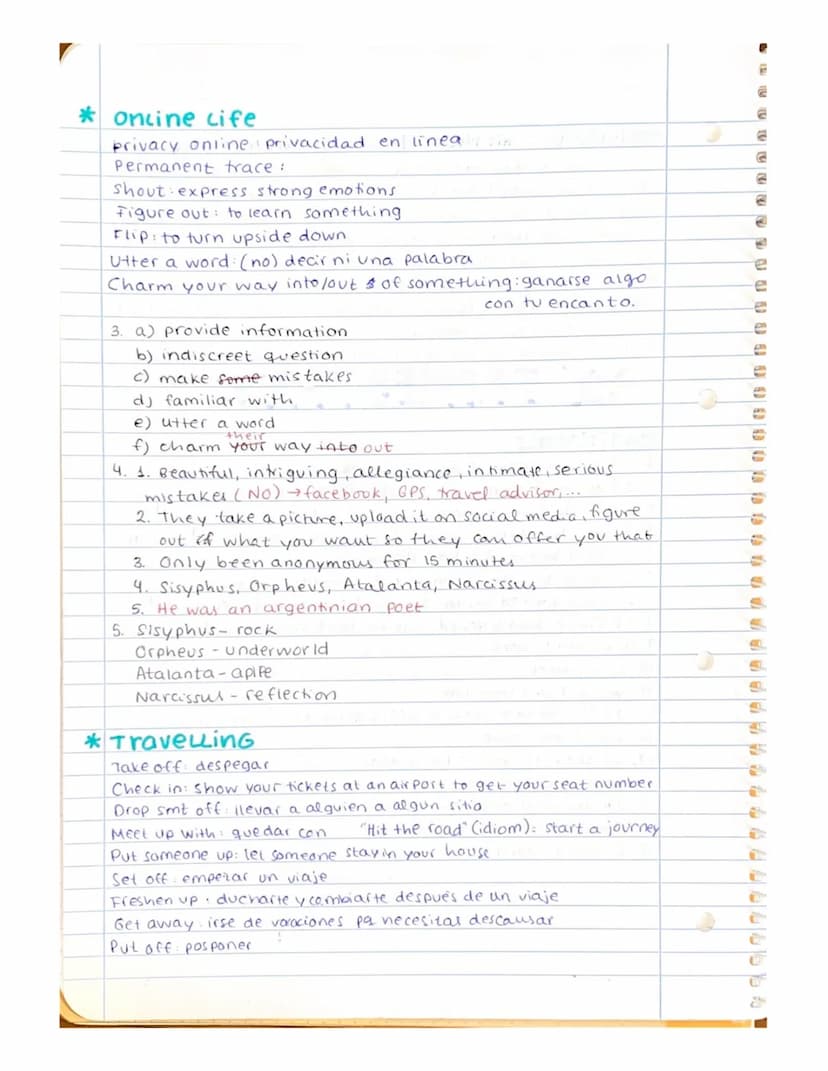 * Online Life
privacy online: privacidad en línea
Permanent trace:
Shout: express strong emotions
Figure out: to learn something
Flip: to turn upside down
Utter a word: (no) decir ni una palabra
Charm your way into/out of something: ganarse algo
con tu encanto.
3. a) provide information
b) indiscreet question
c) make some mistakes
d) familiar with
e) utter a word
their
f) charm your way into out
4. 1. Beautiful, intriguing, allegiance, intimate, serious
mistakes (NO) → facebook, GPS, travel advisor,...
2. They take a picture, upload it on social media, figure
out if what you want so they can offer you that
3. Only been anonymous for 15 minutes
4. Sisyphus, Orpheus, Atalanta, Narcissus
5. He was an argentinian poet
5. Sisyphus - rock
Orpheus - underworld
Atalanta -
Narcissus - reflection
* Travelling
Take off: despegar
Check in: show your tickets at an airport to get your seat number
Drop smt off: llevar a alguien a algun sitio
Meet up with: quedar con "Hit the road" (idiom): start a journey
Put someone up: let someone stay in your house
Set off: empezar un viaje
Freshen up: ducharte y cambiarte después de un viaje
Get away: irse de vacaciones pq necesitas descansar
Put off: posponer